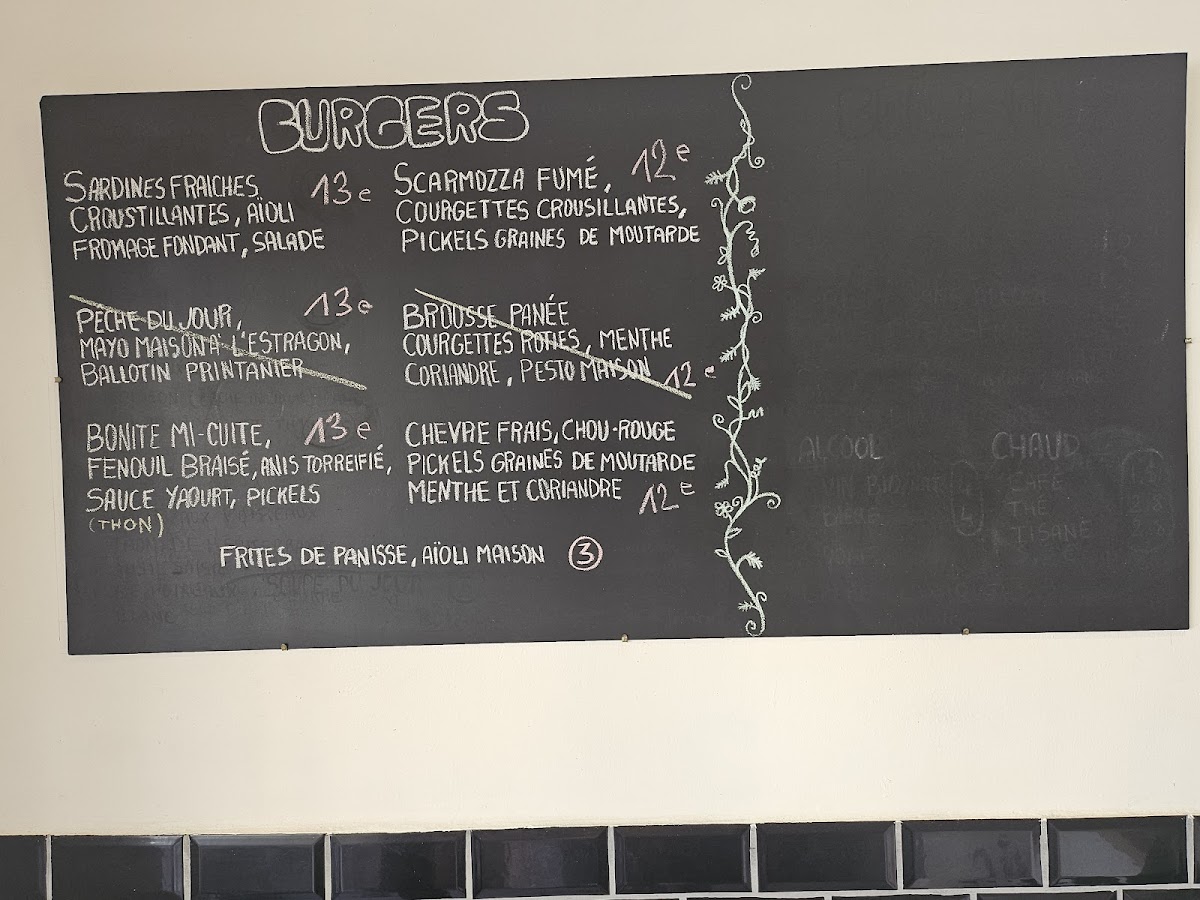 BURGERS
SARDINES FRAICHES 13e
CROUSTILLANTES, AÏOLI
FROMAGE FONDANT, SALADE
PECHE DU JOUR, 13e
MAYO MAISON A L'ESTRAGON,
BALLOTIN PRINTANIER
BONITE MI-CUITE, 13e
FENOUIL BRAISÉ, ANIS TORREIFIÉ,
SAUCE YAOURT, PICKELS
(THON)
SCARMOZZA FUMÉ, 12e
COURGETTES CROUSILLANTES,
PICKELS GRAINES DE MOUTARDE
BROUSSE PANÉE
COURGETTES ROTIES, MENTHE
CORIANDRE, PESTO MAISON 12e
CHEVRE FRAIS, CHOU-ROUGE
PICKELS GRAINES DE MOUTARDE
MENTHE ET CORIANDRE 12e
FRITES DE PANISSE, AÏOLI MAISON 3
ALCOOL
CHAUD
CAFE
THE
TISANE